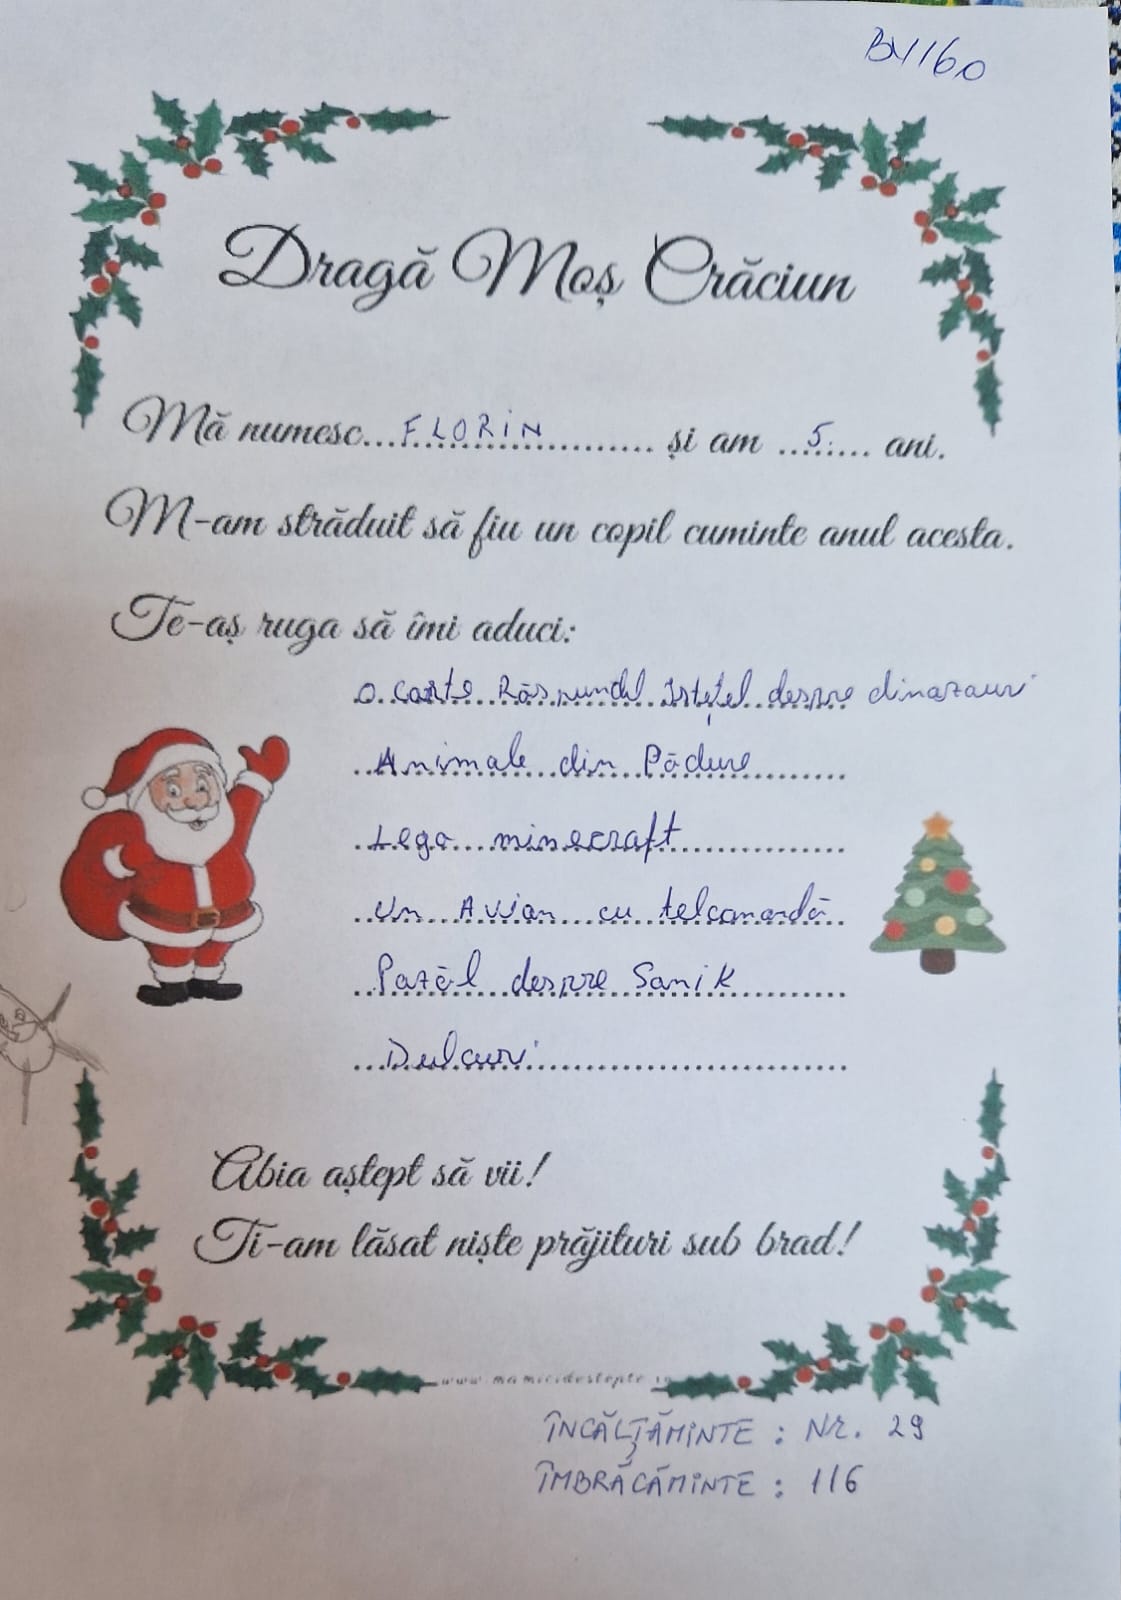 BV160
Dragă Moș Crăciun
Mă numesc...FLORIN............ și am ...5..... ani.
M-am străduit să fiu un copil cuminte anul acesta.
Te-aș ruga să îmi aduci:
O carte Răspundel Istețel despre dinazauri
Animale din Pădure
Lego minecraft
Un Avian cu telcomandă
Pazăl despre Sanik
Dulcuri
Abia aștept să vii!
Ti-am lăsat niște prăjituri sub brad!
www.mamicidestepte.ro
ÎNCĂLȚĂMINTE : Nr. 29
ÎMBRĂCĂMINTE : 116